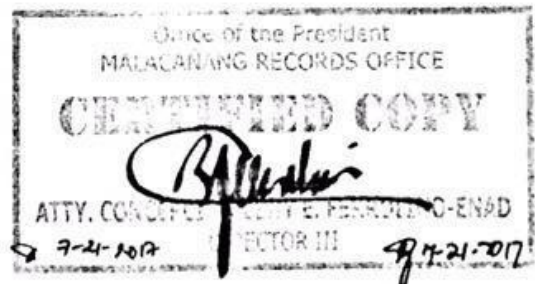 Office of the President
MALACAÑANG RECORDS OFFICE
CERTIFIED COPY
ATTY. E. FERROLINO-ENAD
DIRECTOR III
7-21-2017 7-21-2017